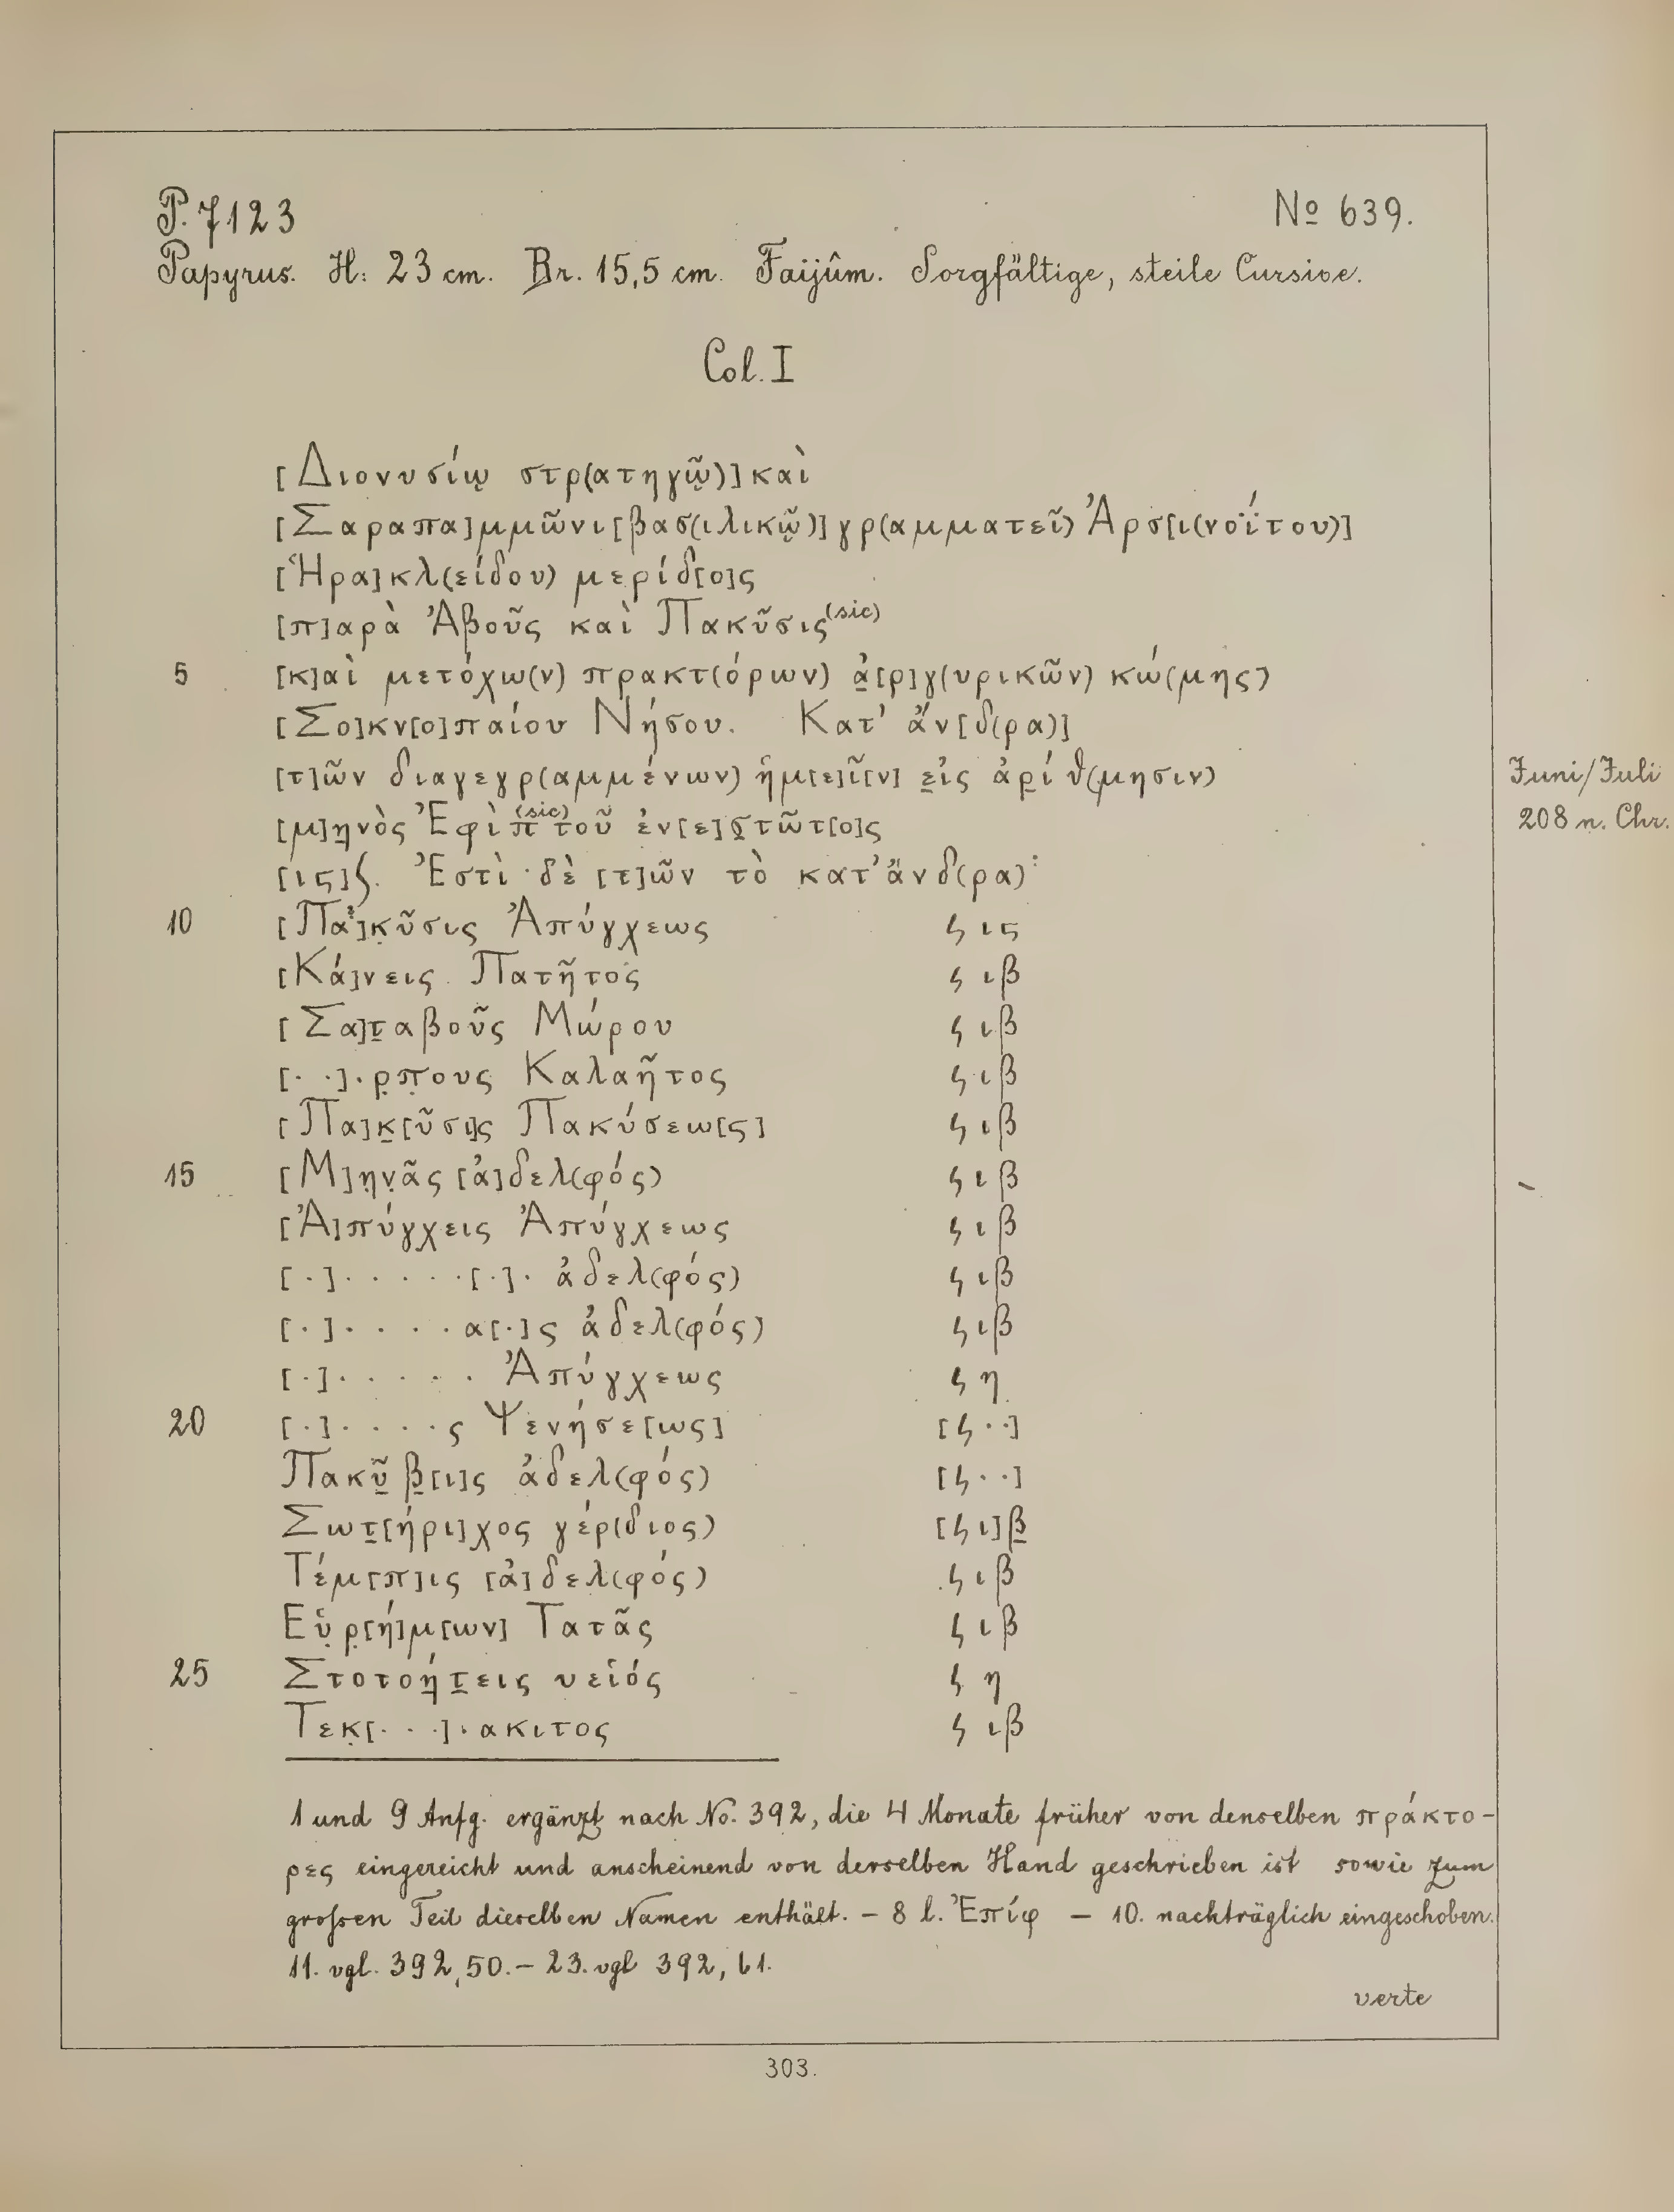 P. 7123
No 639.
Papyrus. H: 23 cm. Br. 15,5 cm. Faijûm. Sorgfältige, steile Cursive.
Col. I
[Διονυσίῳ στρ(ατηγῷ)] καὶ
[Σαραπα]μμῶνι [βασ(ιλικῷ)] γρ(αμματεῖ) Ἀρσ[ι(νοΐτου)]
[Ἡρα]κλ(είδου) μερίδ[ο]ς
[π]αρὰ Ἀβοῦς καὶ Πακῦσις (sic)
5 [κ]αὶ μετόχω(ν) πρακτ(όρων) ἀ̣[ρ]γ(υρικῶν) κώ(μης)
[Σο]κν[ο]παίου Νήσου. Κατ' ἄν[δ(ρα)]
[τ]ῶν διαγεγρ(αμμένων) ἡμ[ε]ῖ[ν] ε̣ἰς ἀρ̣ίθ(μησιν)
Juni/Juli
[μ]η̣νὸς Ἐφὶπ (sic) τοῦ ἐν[ε]σ̣τῶτ[ο]ς
208 n. Chr.
[ις]ʃ. Ἐστὶ δὲ [τ]ῶν τὸ κατ' ἄνδ(ρα):
10 [Πα]κ̣ῦσις Ἀπύγχεως ϟ ις
[Κά]νεις Πατῆτος ϟ ιβ
[Σα]τ̣αβοῦς Μώρου ϟ ιβ
[· ·]·ρ̣π̣ους Καλαῆτος ϟ ιβ
[Πα]κ̣[ῦσι]ς Πακύσεω[ς] ϟ ιβ
15 [Μ]η̣ν̣ᾶς [ἀ]δελ(φός) ϟ ιβ
[Ἀ]πύγχεις Ἀπύγχεως ϟ ιβ
[·]· · · · ·[·]· ἀδελ(φός) ϟ ιβ
[·]· · · ·α[·]ς ἀδελ(φός) ϟ ιβ
[·]· · · · · Ἀπύγχεως ϟ η
20 [·]· · · ·ς Ψενήσε[ως] [ϟ · ·]
Πακῦ̣β̣[ι]ς ἀδελ(φός) [ϟ · ·]
Σωτ̣[ήρι]χος γέρ(διος) [ϟ ι]β̣
Τέμ[π]ις [ἀ]δελ(φός) ϟ ιβ
Εὐ̣ρ̣[ή]μ[ων] Τατᾶς ϟ ιβ
25 Στοτοή̣τ̣εις υεἱός ϟ η
Τεκ̣[· · ·]·ακιτος ϟ ιβ
1 und 9 Anfg. ergänzt nach No. 392, die 4 Monate früher von denselben πράκτο-
ρες eingereicht und anscheinend von derselben Hand geschrieben ist sowie zum
großen Teil dieselben Namen enthält. – 8 l. Ἐπίφ – 10. nachträglich eingeschoben.
11. vgl. 392, 50. – 23. vgl 392, 61.
verte
303.